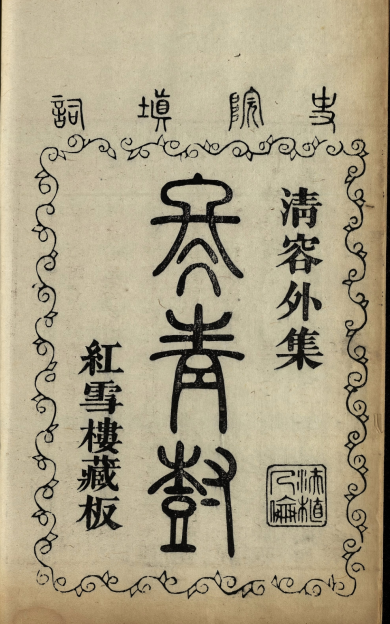 史院填詞
清容外集
冬青樹
紅雪樓藏板
扶植人倫